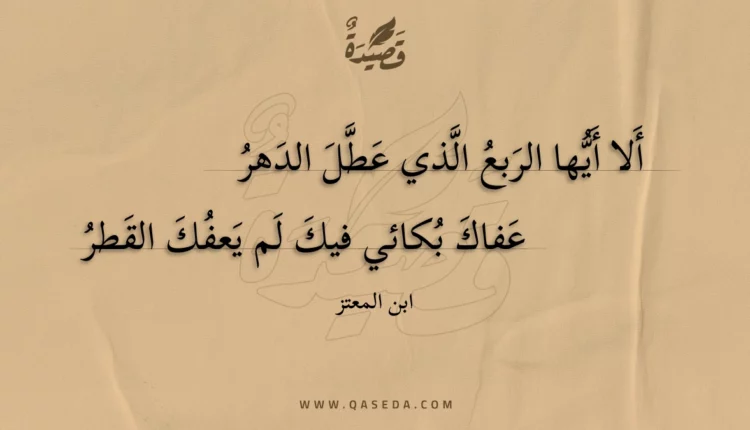 قَصِيدَةٌ
أَلا أَيُّها الرَبعُ الَّذي عَطَّلَ الدَهرُ
عَفاكَ بُكائي فيكَ لَم يَعفُكَ القَطرُ
ابن المعتز
WWW.QASEDA.COM